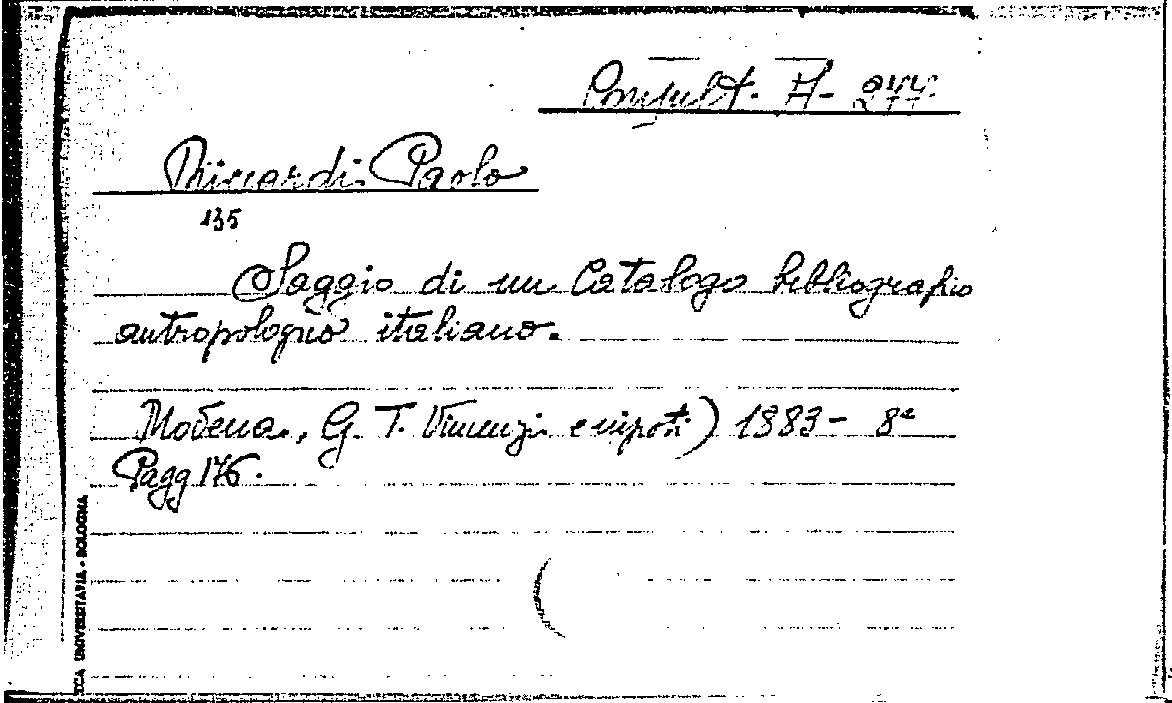 Consult. A- 277.
Riccardi Paolo
135
Saggio di un Catalogo bibliografico
antropologico italiano.
Modena, G. T. Vincenzi e nipoti) 1883- 8°
Pagg 176.
ECA UNIVERSITARIA - BOLOGNA